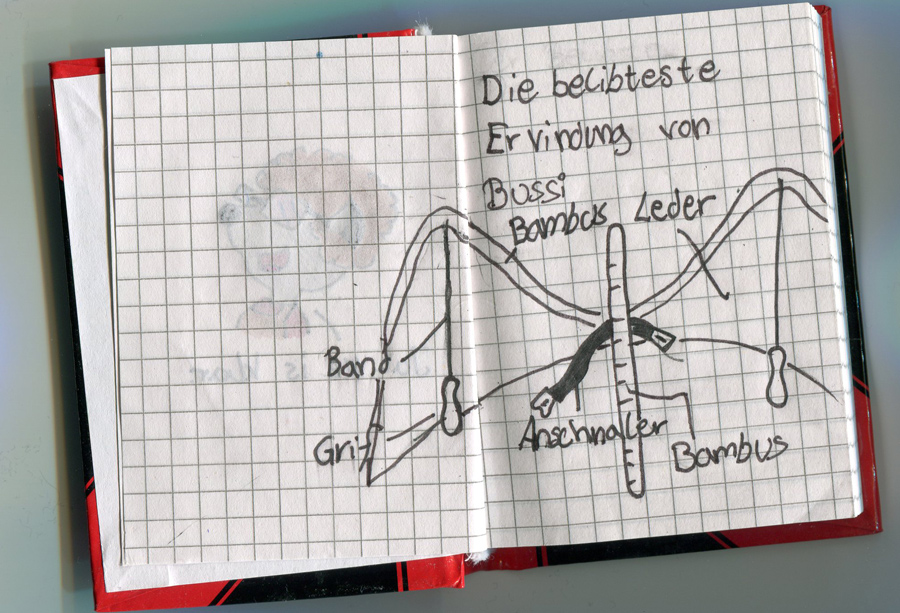 Die belibteste
Ervindung von
Bussi
Bambus Leder
Band
Grif
Anschnaller
Bambus